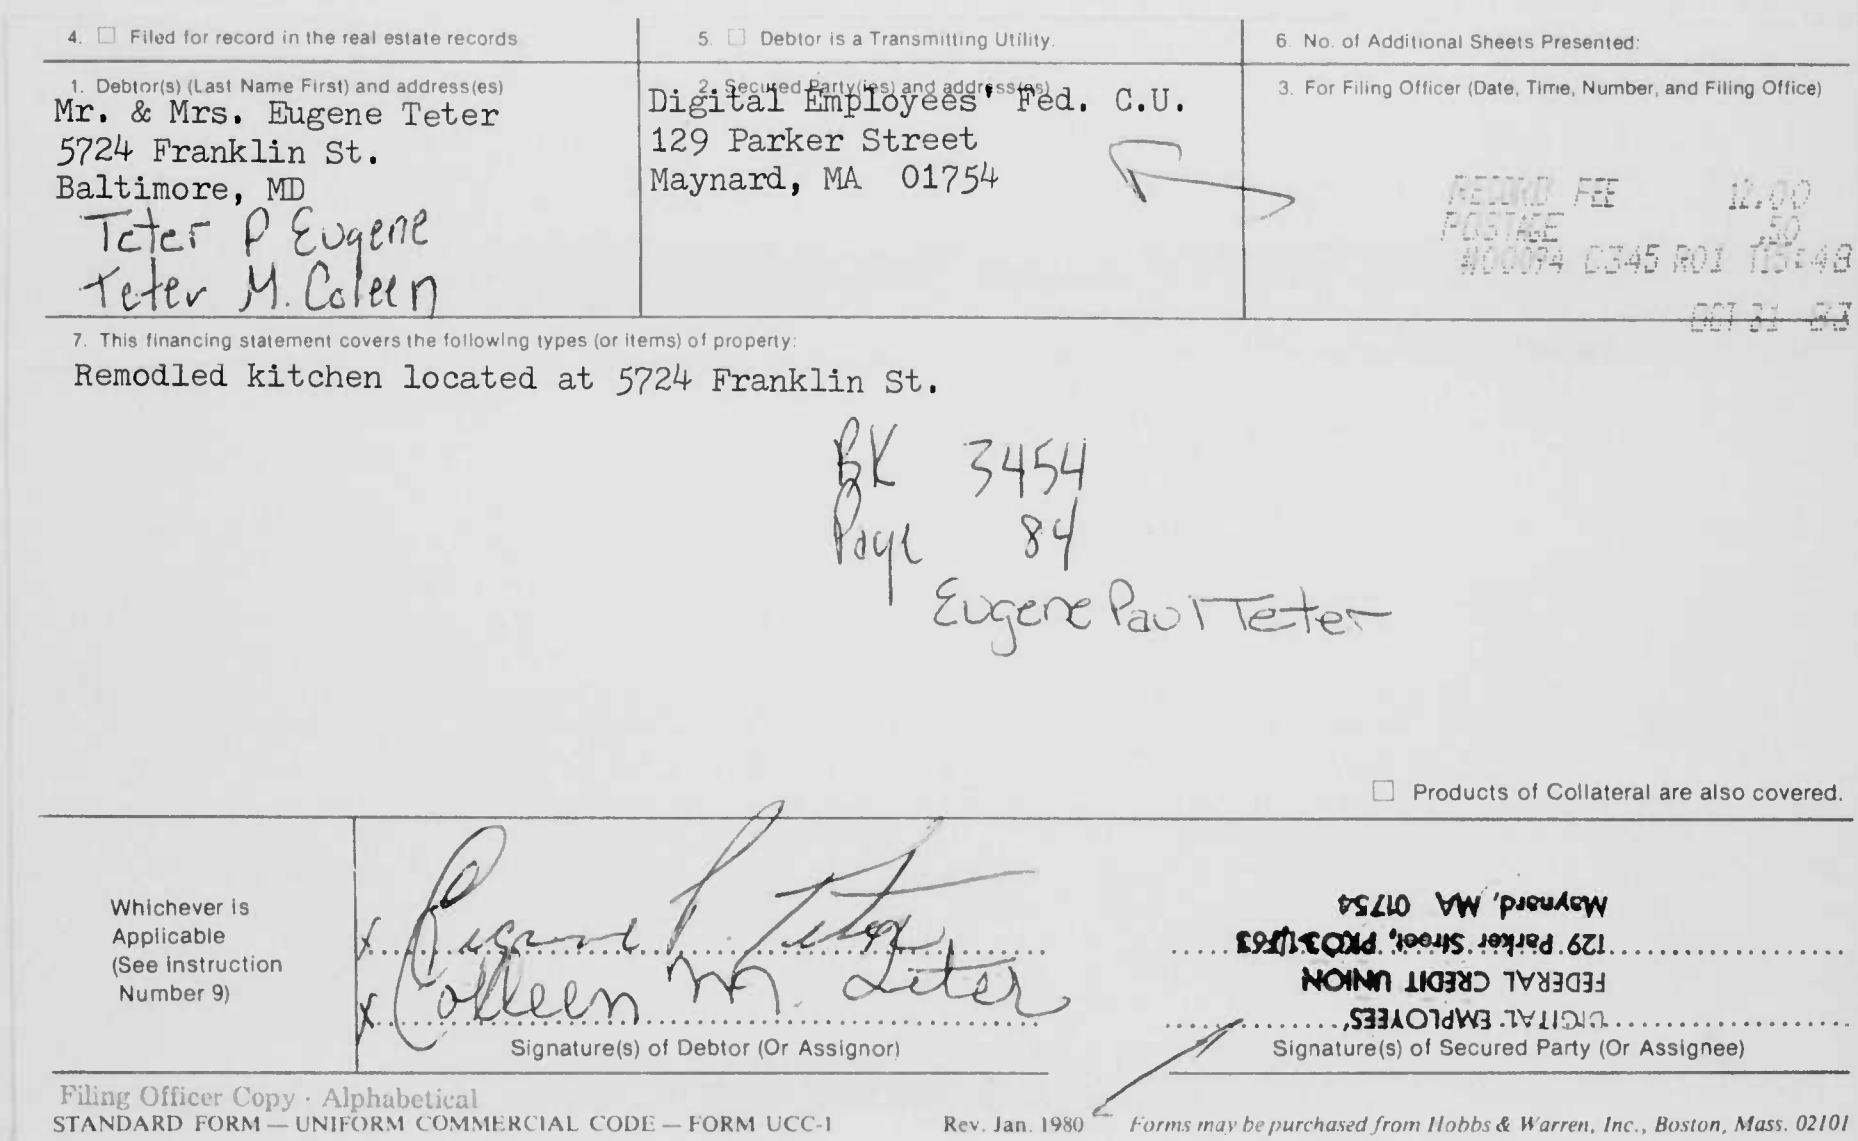 4. ☐ Filed for record in the real estate records
5. ☐ Debtor is a Transmitting Utility.
6. No. of Additional Sheets Presented:
1. Debtor(s) (Last Name First) and address(es)
Mr. & Mrs. Eugene Teter
5724 Franklin St.
Baltimore, MD
Teter P Eugene
Teter M. Coleen
2. Secured Party(ies) and address(es)
Digital Employees' Fed. C.U.
129 Parker Street
Maynard, MA 01754
3. For Filing Officer (Date, Time, Number, and Filing Office)
RECORD FEE 12.00
POSTAGE .50
R01
OCT 31
7. This financing statement covers the following types (or items) of property:
Remodled kitchen located at 5724 Franklin St.
BK 3454
Page 84
Eugene Paul Teter
☐ Products of Collateral are also covered.
Whichever is
Applicable
(See instruction
Number 9)
x Eugene P Teter
x Colleen M. Teter
Signature(s) of Debtor (Or Assignor)
DIGITAL EMPLOYEES'
FEDERAL CREDIT UNION
129 Parker Street,
Maynard, MA 01754
Signature(s) of Secured Party (Or Assignee)
Filing Officer Copy - Alphabetical
STANDARD FORM — UNIFORM COMMERCIAL CODE — FORM UCC-1
Rev. Jan. 1980
Forms may be purchased from Hobbs & Warren, Inc., Boston, Mass. 02101